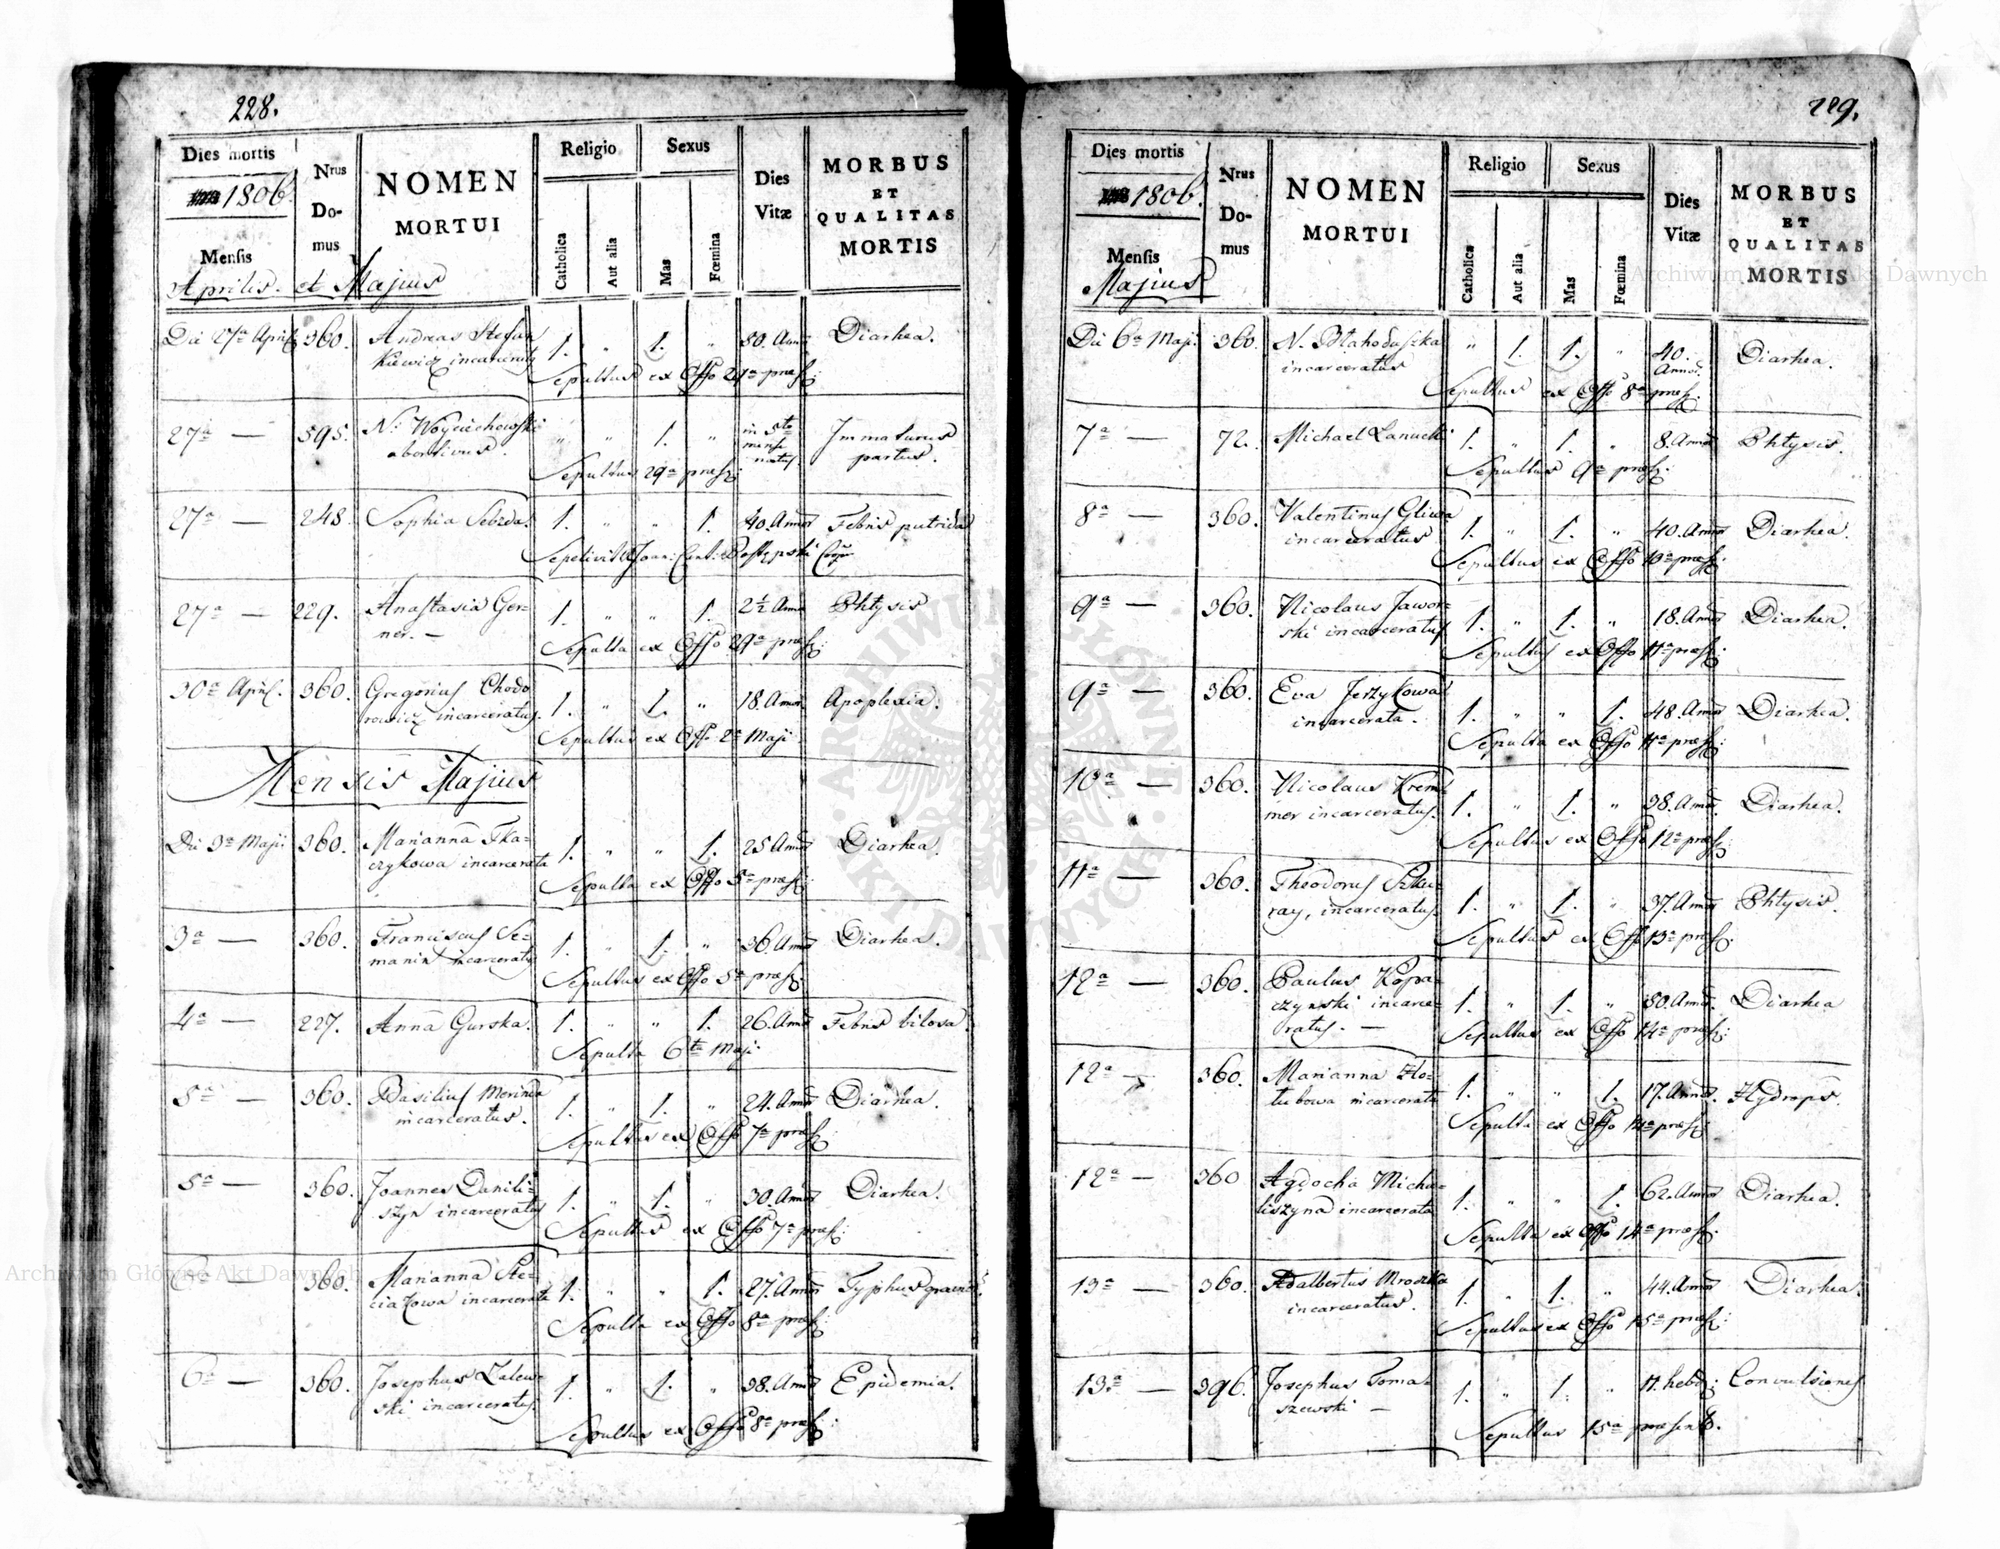 228.
Dies mortis
1806.
Mensis
Aprilis et Majus
Nrus Domus
NOMEN
MORTUI
Religio
Catholica
Aut alia
Sexus
Mas
Fœmina
Dies
Vitæ
MORBUS
ET
QUALITAS
MORTIS
Die 27a April 360. Andreas Stefan 1. " 1. " 50. Annor Diarhea.
kiewicz incarceratus
Sepultus ex Offo 29a præs:
27a — 595. N. Woyciechowski " " 1. " in 5to mense natus Immaturus
abortivus. partus.
Sepultus 29a præs:
27a — 248. Sophia 1. " " 1. 40. Annor Febris putrida
Sepelivit
27a — 229. Anastasia Ger= 1. " " 1. 2½ Anno Phtysis
ner. —
Sepulta ex Offo 29a præs:
30a April. 360. Gregorius Chodo 1. " 1. " 18. Annor Apoplexia.
rowicz incarceratus.
Sepultus ex Offo 2a Maji
Mensis Majus
Die 3a Maji 360. Marianna Tka= 1. " " 1. 25 Annor Diarhea.
czykowa incarcerata
Sepulta ex Offo 5a præs:
3a — 360. Franciscus Se= 1. " 1. " 36. Annor Diarhea.
manin incarceratus
Sepultus ex Offo 5a præs:
4a — 227. Anna Gurska. 1. " " 1. 26. Annor Febris bilosa.
Sepulta 6ta Maji
5a — 360. Basilius 1. " 1. " 24. Annor Diarhea.
incarceratus.
Sepultus ex Offo 7a præs:
5a — 360. Joannes Danili= 1. " 1. " 30. Annor Diarhea.
szyn incarceratus
Sepultus ex Offo 7a præs:
6a — 360. Marianna Ste= 1. " " 1. 27. Annor Typhus
ciakowa incarcerata
Sepulta ex Offo 8a præs:
6a — 360. Josephus Zalew= 1. " 1. " 38. Annor Epidemia.
ski incarceratus.
Sepultus ex Offo 8a præs:
229.
Dies mortis
1806.
Mensis
Majus
Nrus Domus
NOMEN
MORTUI
Religio
Catholica
Aut alia
Sexus
Mas
Fœmina
Dies
Vitæ
MORBUS
ET
QUALITAS
MORTIS
Die 6a Maji 360. N. Błahoduszka " 1. 1. " 40. Annor. Diarhea.
incarceratus
Sepultus ex Offo 8a præs:
7a — 72. Michael Lanucki 1. " 1. " 8. Annor Phtysis.
Sepultus 9a præs:
8a — 360. Valentinus Gliwa 1. " 1. " 40. Annor Diarhea.
incarceratus
Sepultus ex Offo 10a præs:
9a — 360. Nicolaus Jawor= 1. " 1. " 18. Annor Diarhea.
ski incarceratus
Sepultus ex Offo 11a præs:
9a — 360. Eva Jerzykowa 1. " " 1. 48. Annor Diarhea.
incarcerata.
Sepulta ex Offo 11a præs:
10a — 360. Nicolaus Krem= 1. " 1. " 38. Annor. Diarhea.
mer incarceratus.
Sepultus ex Offo 12a præs:
11a — 360. Theodorus Szku= 1. " 1. " 37. Annor Phtysis.
ray, incarceratus.
Sepultus ex Offo 13a præs:
12a — 360. Paulus Kopa= 1. " 1. " 50. Annor. Diarhea
czynski incarce=
ratus. —
Sepultus ex Offo 14a præs:
12a — 360. Marianna Hło= 1. " " 1. 17. Annor. Hydrops.
lubowa incarcerata
Sepulta ex Offo 14a præs:
12a — 360 Agdocha Micha= 1. " " 1. 62. Annor Diarhea.
liszyna incarcerata
Sepulta ex Offo 14a præs:
13a — 360. Adalbertus Mroszka 1. " 1. " 44. Annor Diarhea.
incarceratus.
Sepultus ex Offo 15a præs:
13a — 396. Josephus Toma= 1. " 1. " 11. hebd: Convulsiones
szewski —
Sepultus 15a præsentis.
ARCHIWUM GŁÓWNE AKT DAWNYCH
Archiwum Główne Akt Dawnych